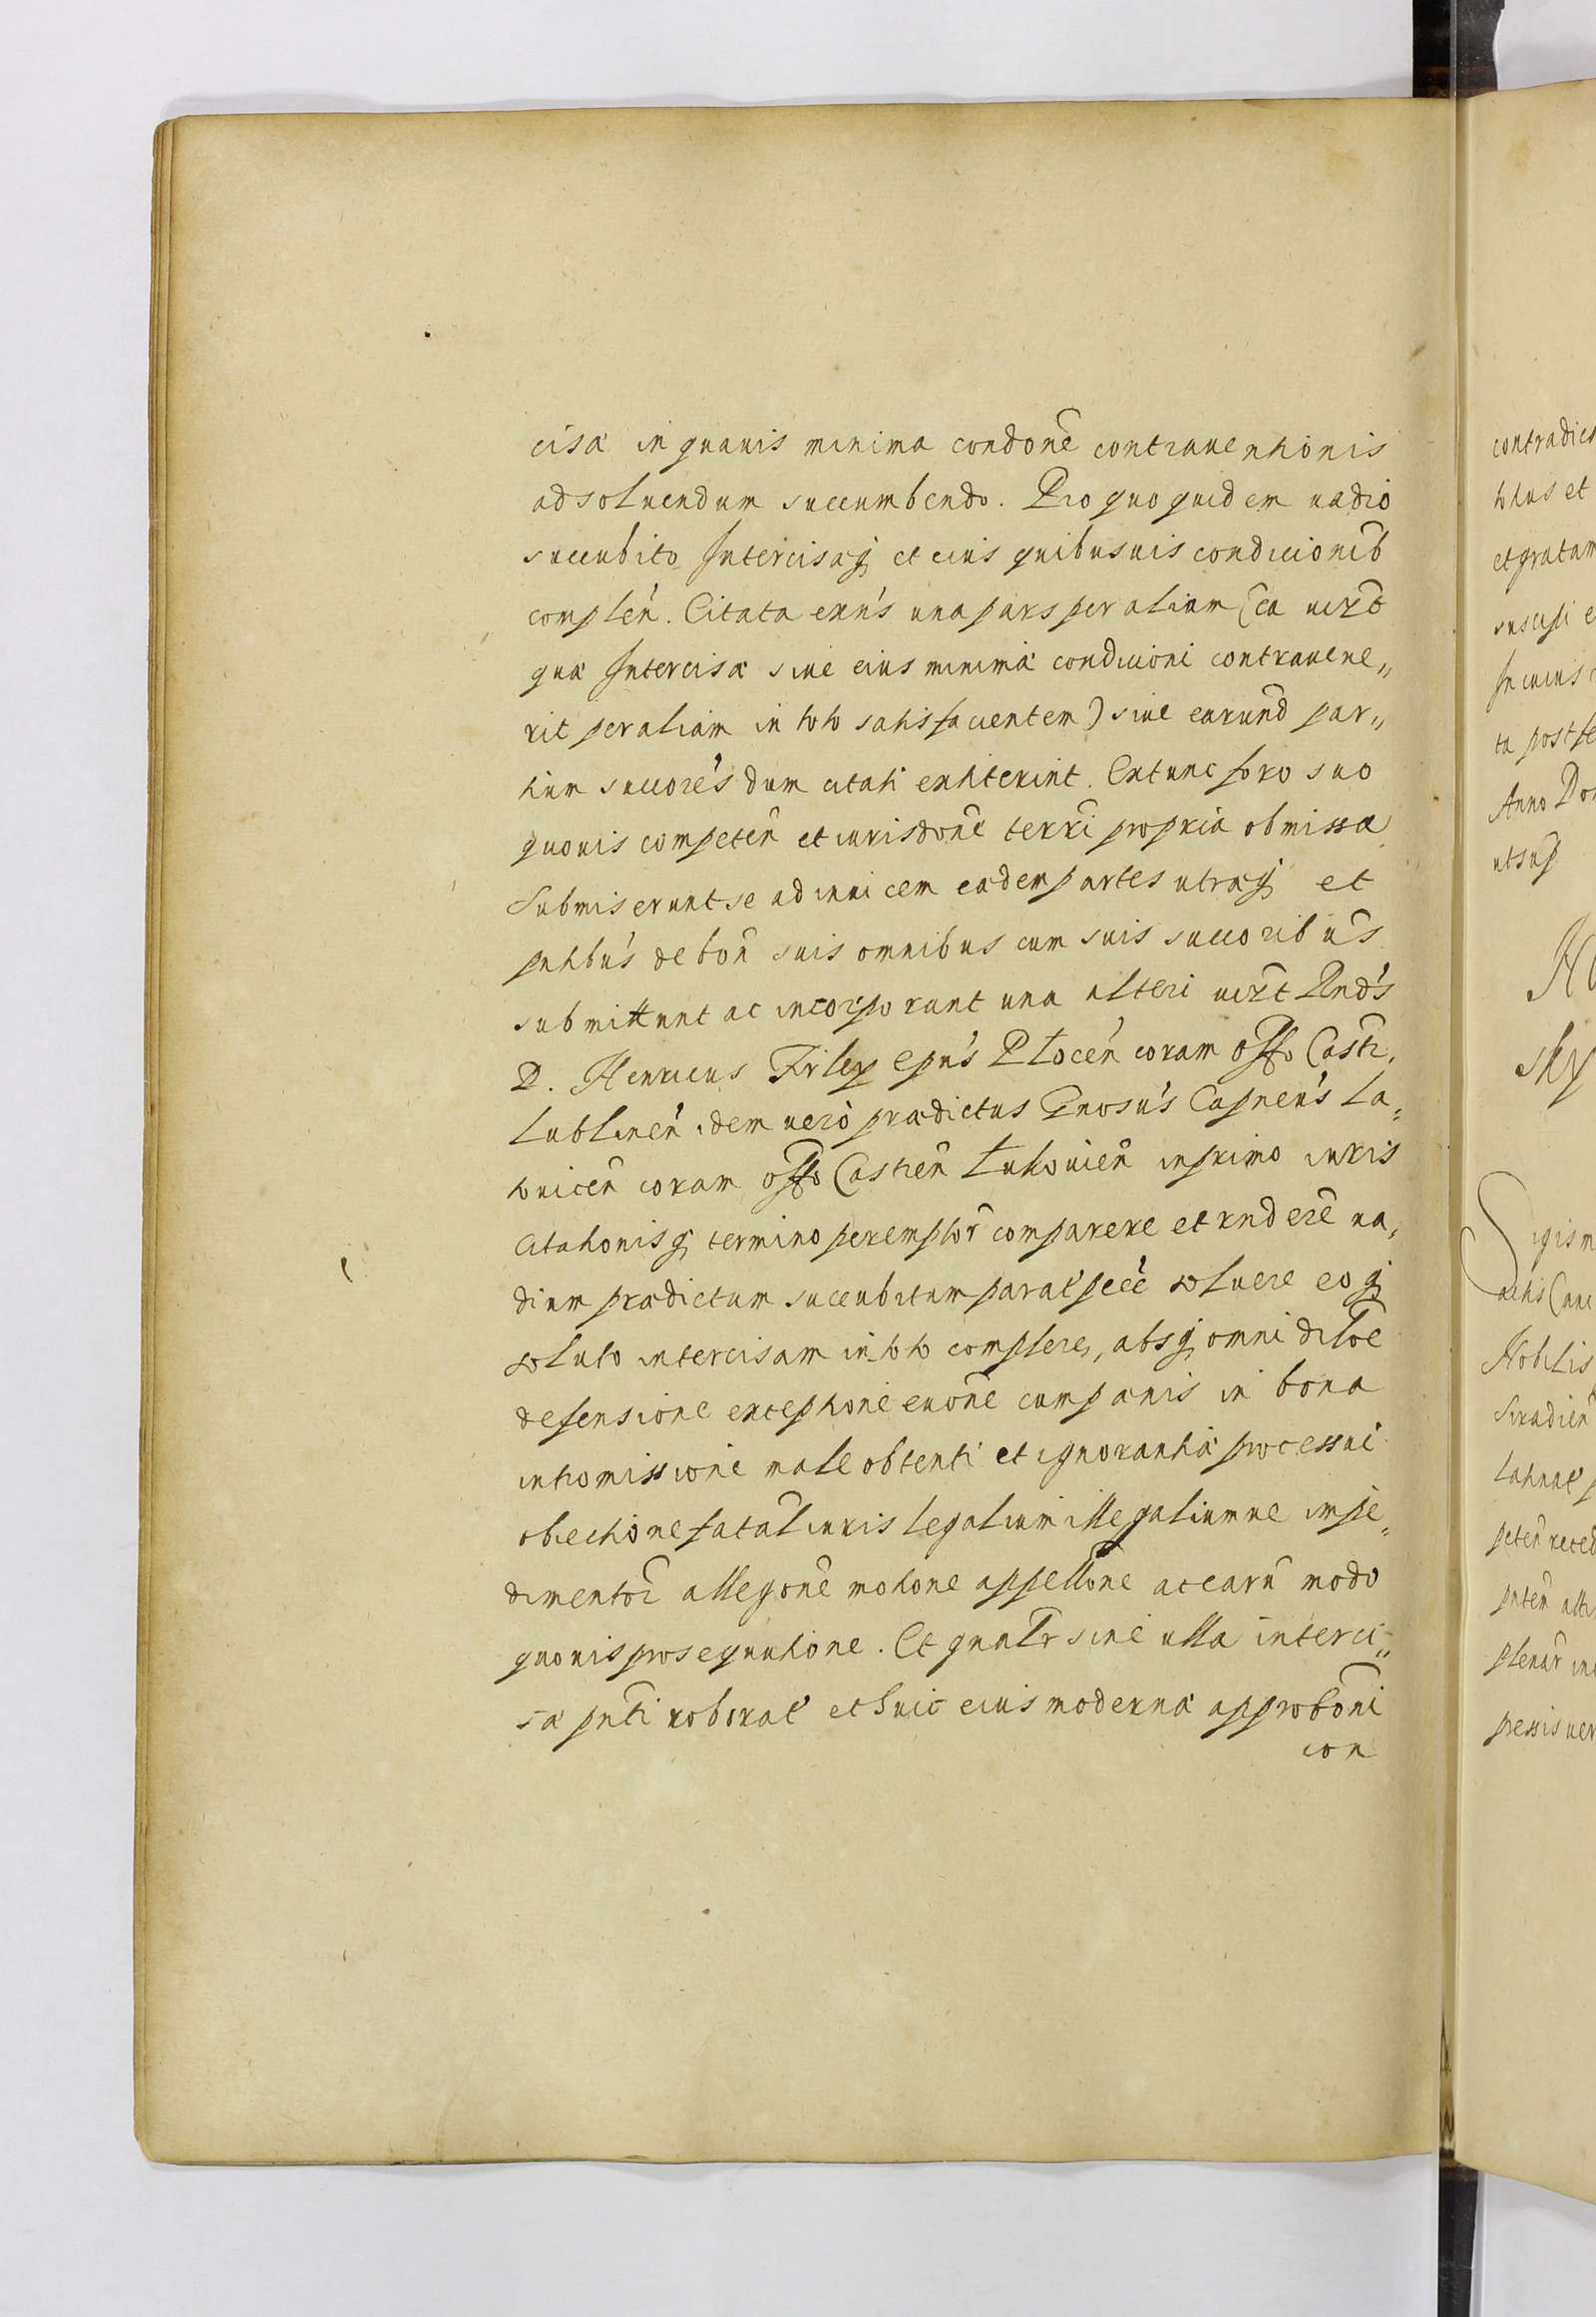 cisa in quavis minima condone contravenhonis
ad soluendum succumbendo. Pro quo quidem vadio
succubito Intercisaq et eius quibusuis condicionib
complen. Citata exn's una pars per aliam (ea vizt
qua Intercisa siue eius minima condicioni contrauene„
rit per aliam in toto satisfacientem) siue earund par„
tium succores dum citati extiterint. Extunc foro suo
quouis competen et iurisdone terri propria obmissa
Submiserunt se ad inuicem eadem partes utraq et
pntbus de bon suis omnibus cum suis succoribus
submittunt ac incorporant una alteri vizt Rnd's
D. Henricus Firley Epu's Plocen coram Offo Castr.
Lublinen idem vero prædictus Gnosus Capneus La„
towicen coram offo Castren Lukouien in primo iuris
Citationisq termino peremptor comparere et rndere va„
dium prædictum succubitum parat pcce soluere eoq
soluto intercisam in toto complere, absq omni diloe
defensione exceptione euone cumpanis in bona
intromissione male obtenti et ignorantia processui
obiectione fatal iuris legalium illegaliumue impe„
dimentor allegone motone appellone ac earu modo
quouis prosequutione. Et gnalr siue ulla interci„
sa pnti roborat et huic eius moderna approboni
con
contradict
totus et
et gratam
suscepi e
In cuius
ta post se
Anno Dom
ut sup
sky
Sigism
Nobilis
Siradien
peten reced
pnten alti
plenar in
pressis ver